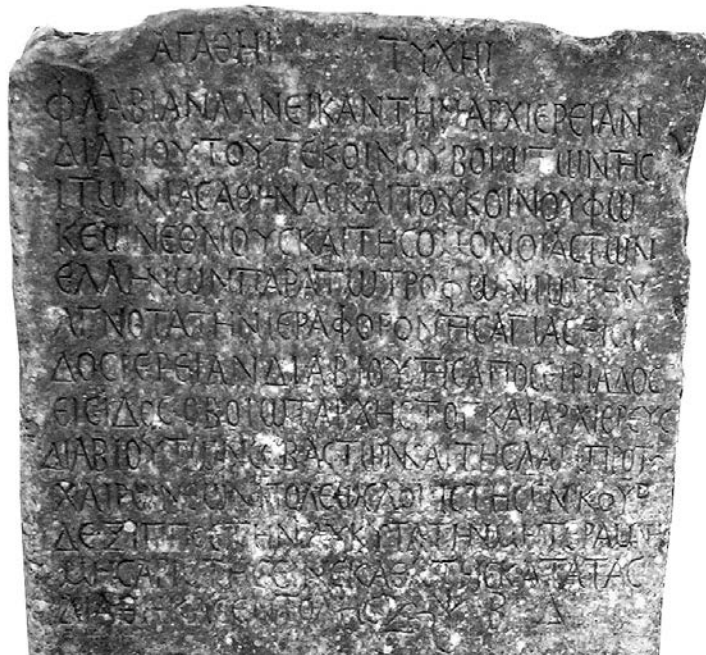 ΑΓΑΘΗΙ ΤΥΧΗΙ
ΦΛΑΒΙΑΝ ΛΑΝΕΙΚΑΝ ΤΗΝ ΑΡΧΙΕΡΕΙΑΝ
ΔΙΑ ΒΙΟΥ ΤΟΥ ΤΕ ΚΟΙΝΟΥ ΒΟΙΩΤΩΝ ΤΗϹ
ΙΤΩΝΙΑϹ ΑΘΗΝΑϹ ΚΑΙ ΤΟΥ ΚΟΙΝΟΥ ΦΩ
ΚΕΩΝ ΕΘΝΟΥϹ ΚΑΙ ΤΗϹ ΟΜΟΝΟΙΑϹ ΤΩΝ
ΕΛΛΗΝΩΝ ΠΑΡΑ ΤΩ ΤΡΟΦΩΝΙΩ ΤΗΝ
ΑΓΝΟΤΑΤΗΝ ΙΕΡΑΦΟΡΟΝ ΤΗϹ ΑΓΙΑϹ ΕΙϹΙ
ΔΟϹ ΙΕΡΕΙΑΝ ΔΙΑ ΒΙΟΥ ΤΗϹ ΑΠΟϹΕΙΡΙΑΔΟϹ
ΕΙϹΙΔΟϹ Ο ΒΟΙΩΤΑΡΧΗϹ ΚΑΙ ΑΡΧΙΕΡΕΥϹ
ΔΙΑ ΒΙΟΥ ΤΩΝ ϹΕΒΑϹΤΩΝ ΚΑΙ ΤΗϹ ΛΑΜΠΡΟΤΑ
ΧΑΙΡΩΝΕΩΝ ΠΟΛΕΩϹ
ΔΕΞΙΠΠΟϹ ΤΗΝ ΓΛΥΚΥΤΑΤΗΝ ΜΗΤΕΡΑ
ΕΝΕΚΑ ΚΑΤΑ ΤΑϹ
Β Δ